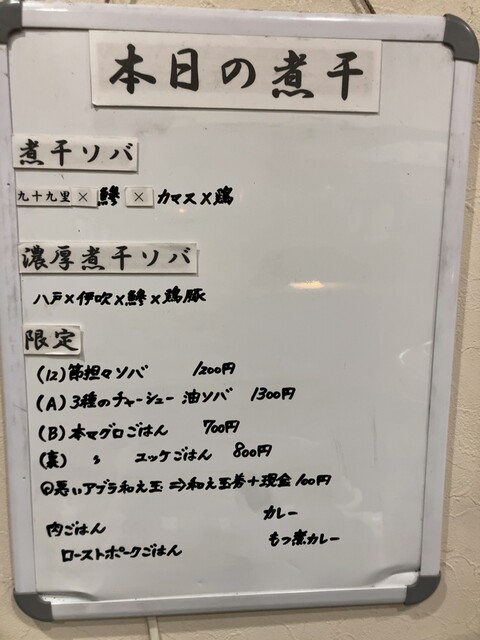 本日の煮干
煮干ソバ
九十九里×鯵×カマス×鶏
濃厚煮干ソバ
八戸×伊吹×鯵×鶏豚
限定
(12)節担々ソバ 1200円
(A)3種のチャーシュー油ソバ 1300円
(B)本マグロごはん 700円
(裏) 〃 ユッケごはん 800円
悪いアブラ和え玉⇒和え玉券+現金100円
肉ごはん カレー
ローストポークごはん もつ煮カレー